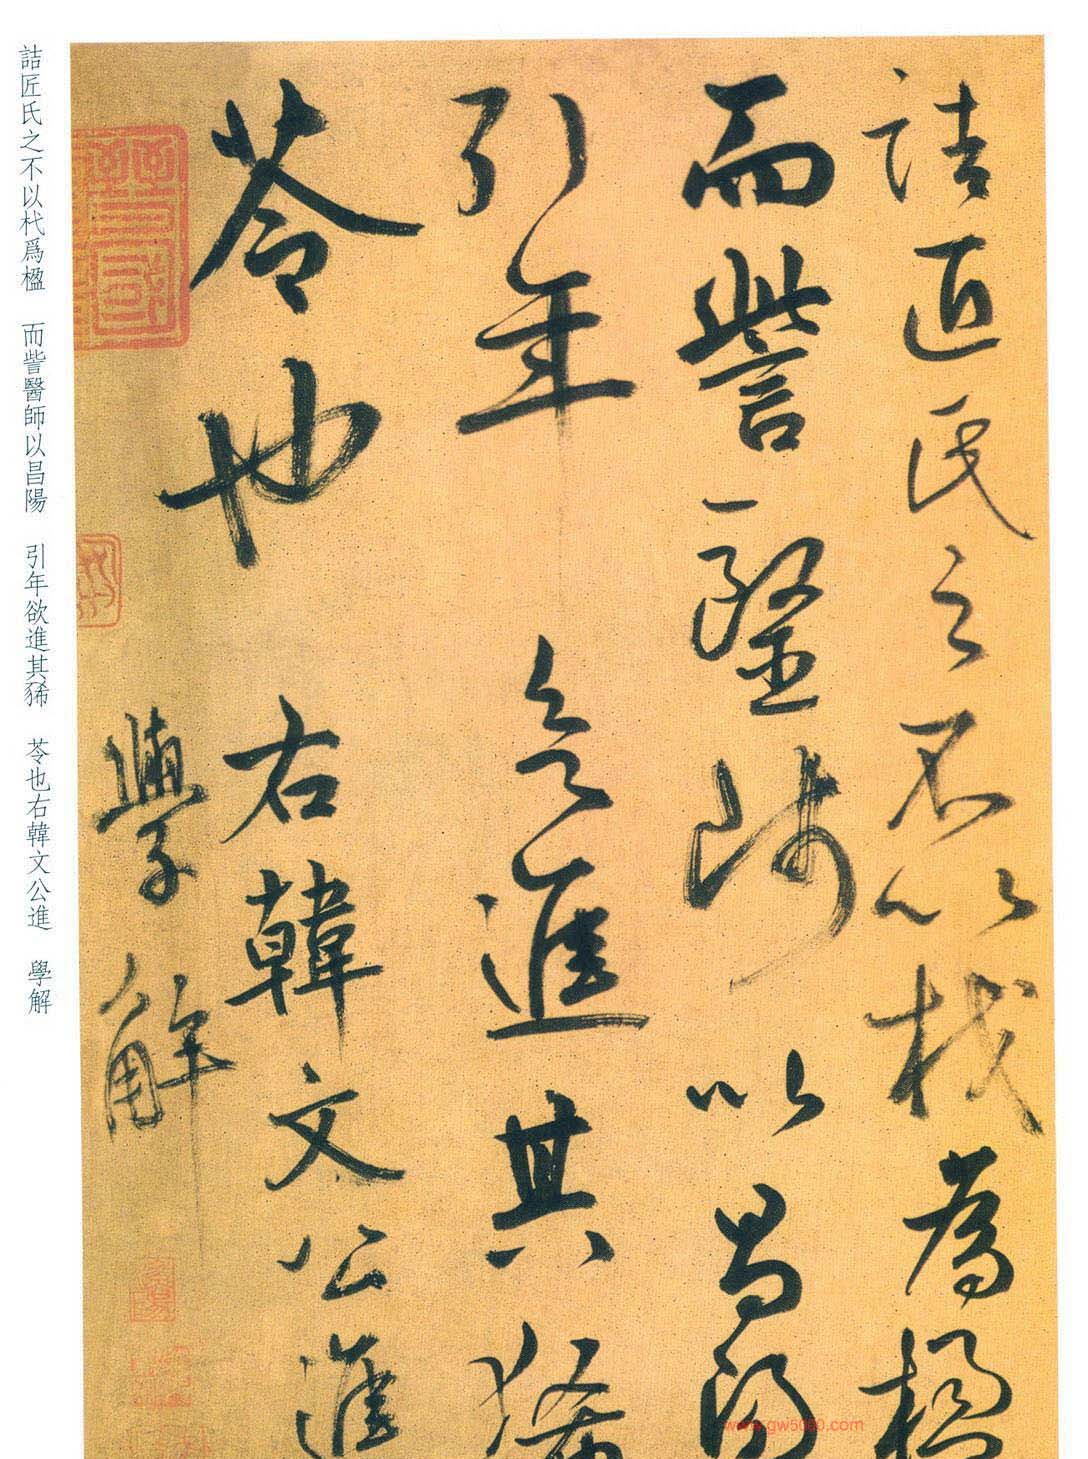 詰匠氏之不以杙爲楹
而訾醫師以昌陽
引年欲進其豨
苓也右韓文公進
學解
詰匠氏之不以杙爲楹 而訾醫師以昌陽 引年欲進其豨 苓也右韓文公進 學解
www.gw5000.com